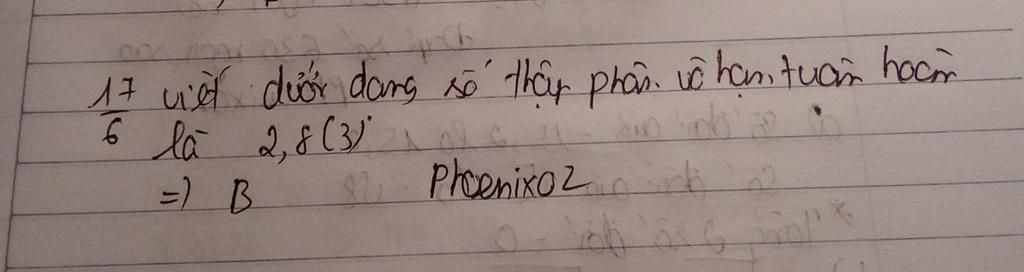 17/6 viết dưới dạng số thập phân vô hạn tuần hoàn
là 2,8(3)
=) B Phoenix02